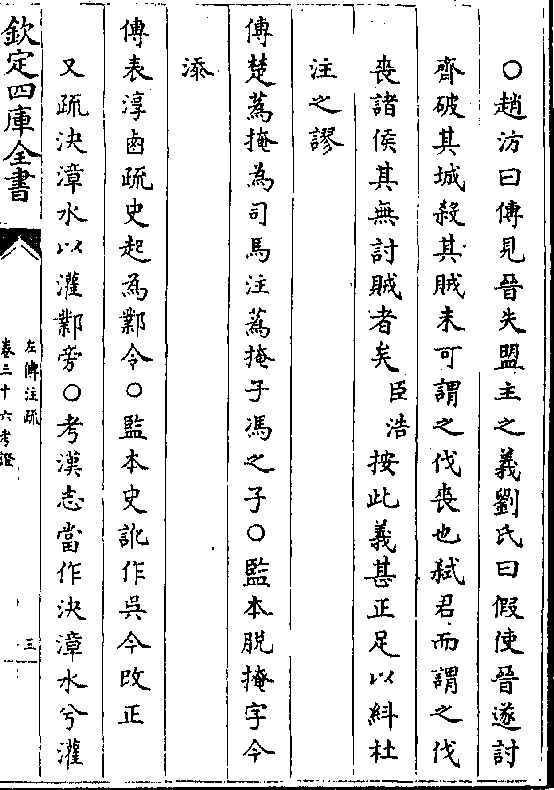 ○趙汸曰傳見晉失盟主之義劉氏曰假使晉遂討
齊破其城殺其賊未可謂之伐喪也弑君而謂之伐
喪諸侯其無討賊者矣臣浩按此義甚正足以糾杜
注之謬
傳楚蒍掩為司馬注蒍掩子馮之子○監本脫掩字今
添
傳表淳鹵疏史起為鄴令○監本史訛作吳今改正
又疏決漳水以灌鄴旁○考漢志當作決漳水兮灌
欽定四庫全書
左傳注疏
卷三十六考證
三